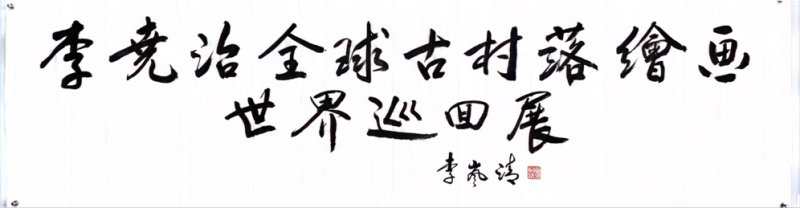 李尭治全球古村落繪画
世界巡回展
李岚清